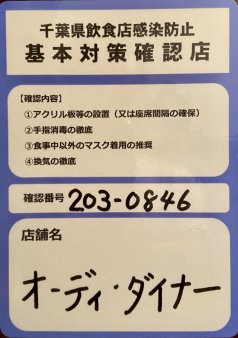 千葉県飲食店感染防止
基本対策確認店
【確認内容】
①アクリル板等の設置（又は座席間隔の確保）
②手指消毒の徹底
③食事中以外のマスク着用の推奨
④換気の徹底
確認番号 203-0846
店舗名
オーディ・ダイナー